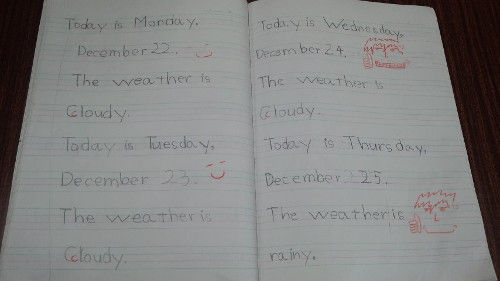 Today is Monday.
December 22.
The weather is
Cloudy.
Today is Tuesday.
December 23.
The weather is
Cloudy.
Today is Wednesday.
December 24.
The weather is
Cloudy.
Today is Thursday.
December 25.
The weather is
rainy.